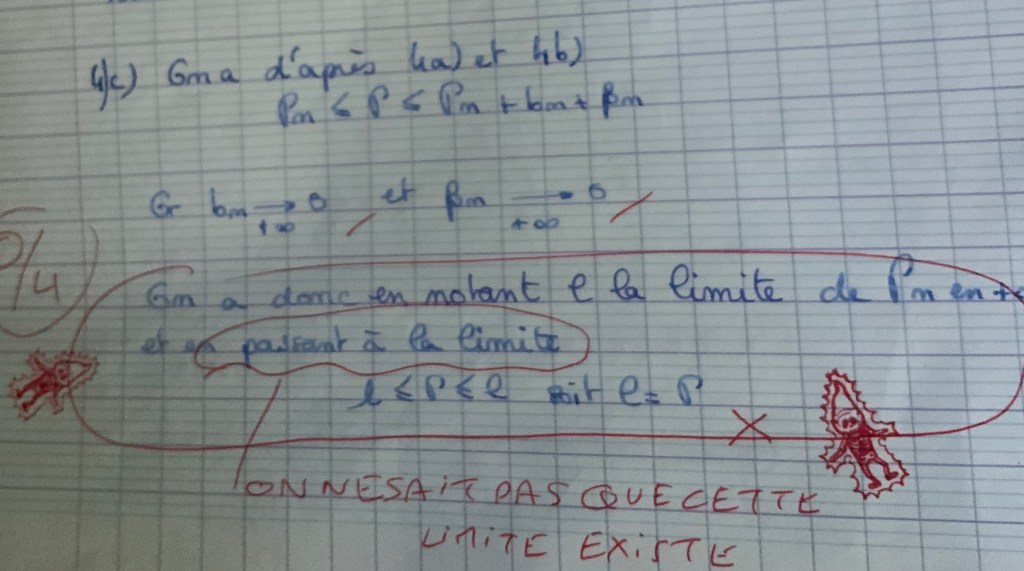 4)c) On a d'après 4a) et 4b)
Pn ≤ P ≤ Pn + bn + βn
Or bn → 0 et βn → 0
+∞ +∞
/4
On a donc en notant l la limite de Pn en +∞
et en passant à la limite
l ≤ P ≤ l soit l = P
ON NE SAIT PAS QUE CETTE
LIMITE EXISTE